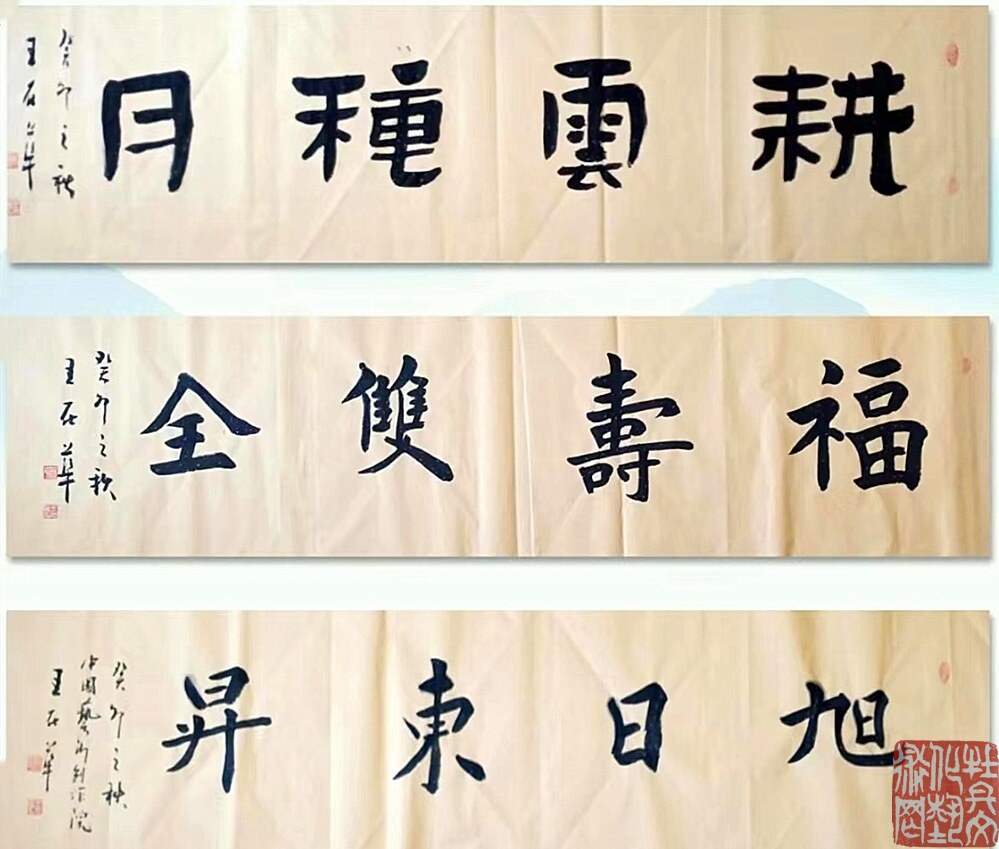 耕雲種月
癸卯之秋
王
福壽雙全
癸卯之秋
王
旭日東昇
癸卯之秋
中國藝術創作院
王